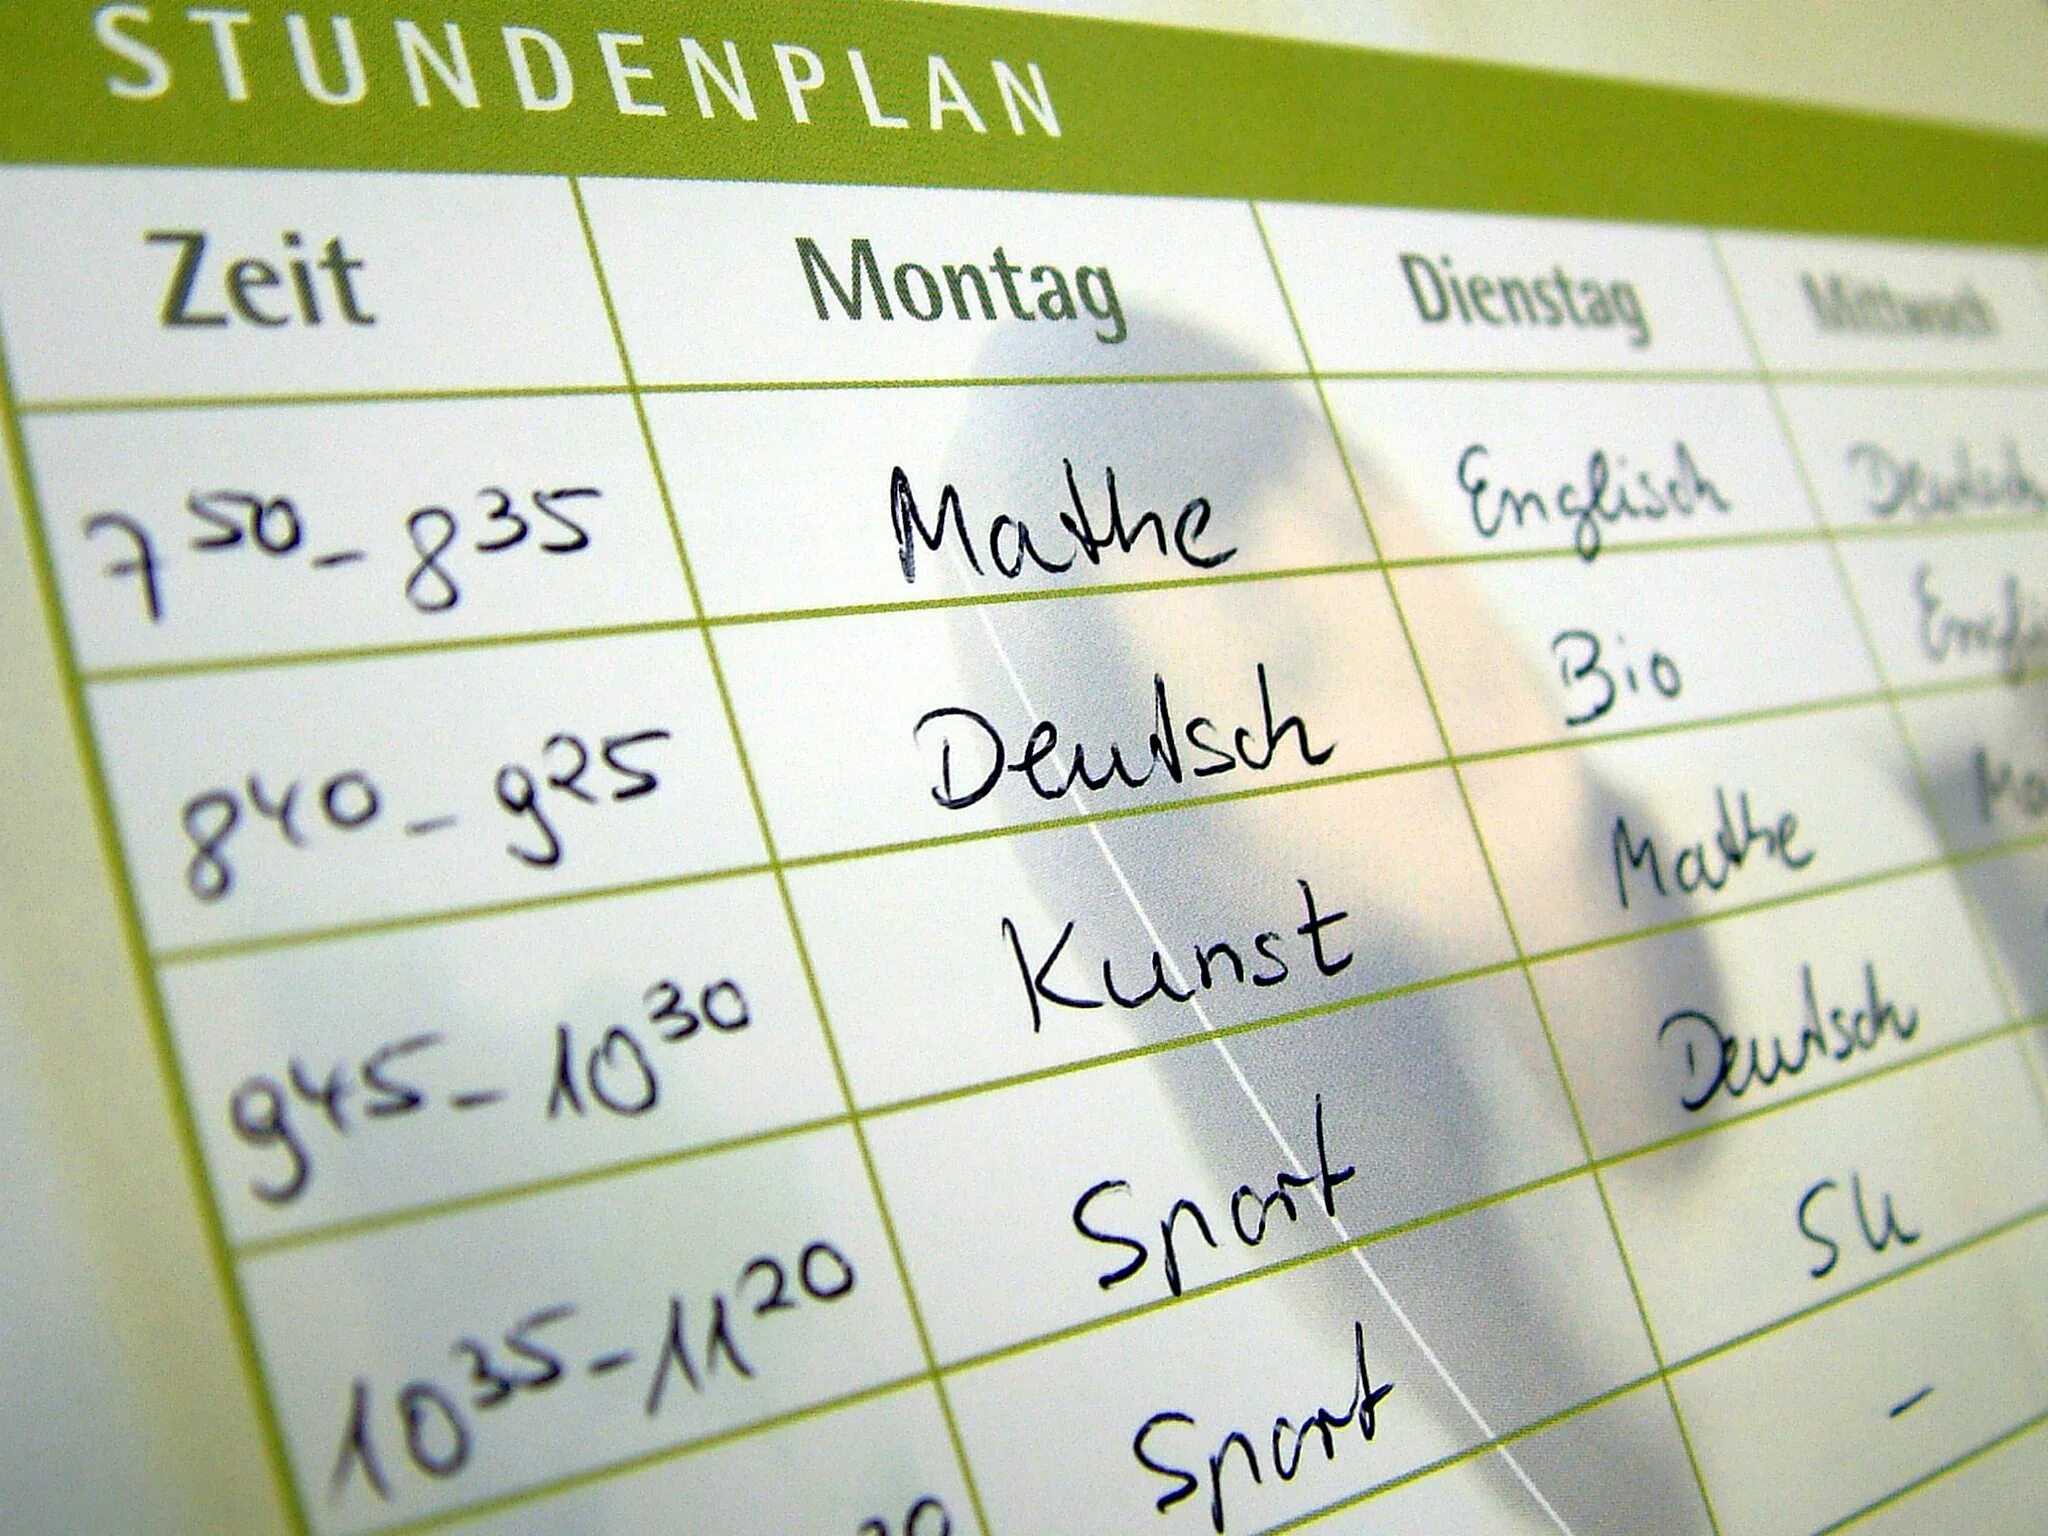 STUNDENPLAN
Zeit Montag Dienstag Mittwoch
7 50 - 8 35 Mathe Englisch Deutsch
8 40 - 9 25 Deutsch Bio
9 45 - 10 30 Kunst Mathe
10 35 - 11 20 Sport Deutsch
Sport Sk
-